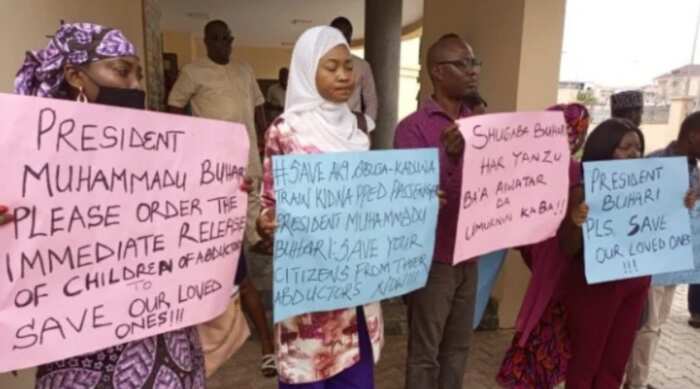 PRESIDENT
MUHAMMADU BUHARI
PLEASE ORDER THE
IMMEDIATE RELEASE
OF CHILDREN OF ABDUCTORS
TO
SAVE OUR LOVED
ONES!!!
#SAVE AK9 ABUJA-KADUNA
TRAIN KIDNAPPED PASSENGERS
PRESIDENT MUHAMMADU
BUHARI SAVE YOUR
CITIZENS FROM THEIR
ABDUCTORS NOW!!!
SHUGABA BUHARI
HAR YANZU
BA'A AIWATAR
DA
UMURNIN KA BA!!
PRESIDENT
BUHARI
PLS. SAVE
OUR LOVED ONES
!!!